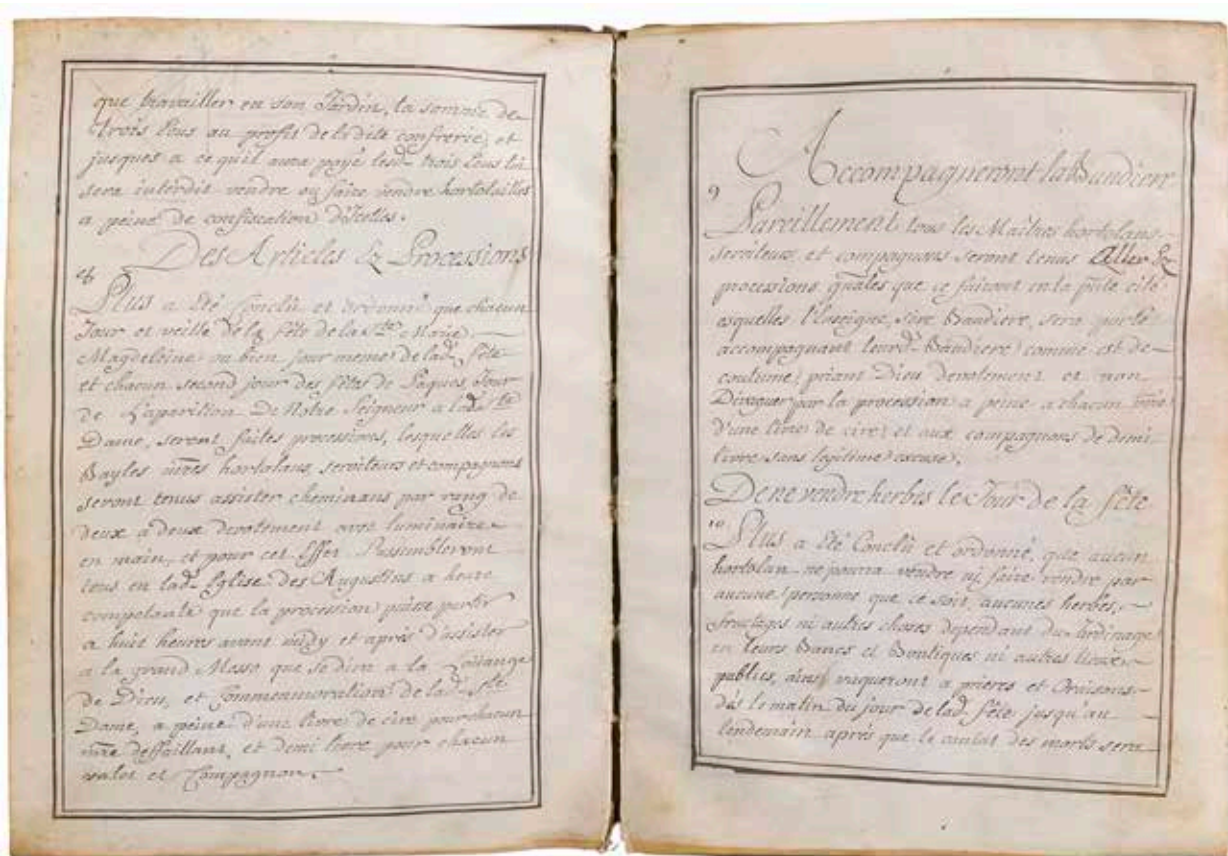 que travailler en son Jardin, la somme de
trois sous au profit de ladite confrerie, et
jusques a ce quil aura payé lesd. trois sous lui
sera interdit vendre ou faire vendre hortolailles
a peine de confiscation d'Icelles.
Des Articles & Processions
8
Plus a été Conclû et ordonné que chacun
Jour et veille de la fête de la Ste. Marie
Magdeleine ou bien jour même de lad. fête
et chacun second jour des fêtes de Paques Jour
de L'aparition De Notre Seigneur a lad. Ste
Dame, seront faites processions, lesquelles les
Bayles mres hortolans, serviteurs et compagnons
seront tenus assister cheminans par rang de
deux a deux devotement avec luminaire
en main, et pour cet Effet S'assembleront
tous en lad. Eglise des Augustins a heure
competante que la procession puisse partir
a huit heures avant midy et après d'assister
a la grand Messe que se dira a la Loüange
de Dieu, et Commeamoration de lad. Ste
Dame, a peine d'une livre de cire pour chacun
mre deffaillant, et demi livre pour chacun
valet et Compagnon.
Accompagneront la Bandiere
9
Pareillement tous les Maîtres hortolans
serviteurs et compagnons seront tenus Aller &
processions quales que ce fairont en la pnte cité
asquelles l'Enseigne, sive Bandiere, sera porté
accompagnant leurd. Bandiere comme est de
coutume, priant Dieu devotement et non
Divaguer par la procession a peine a chacun mre
d'une livre de cire et aux compagnons de demi
livre sans legitime excuse.
De ne vendre herbes le Jour de la fête
10
Plus a été Conclû et ordonné, que aucun
hortolan ne pourra vendre ni faire vendre par
aucune personne que ce soit, aucunes herbes,
fruitages ni autres choses dependant du Jardinage
en leurs Bancs et Boutiques ni autres lieux
publics, ains vaqueront a prieres et Oraisons
dés le matin du jour de lad. fête jusqu'au
lendemain après que le cantat des morts sera